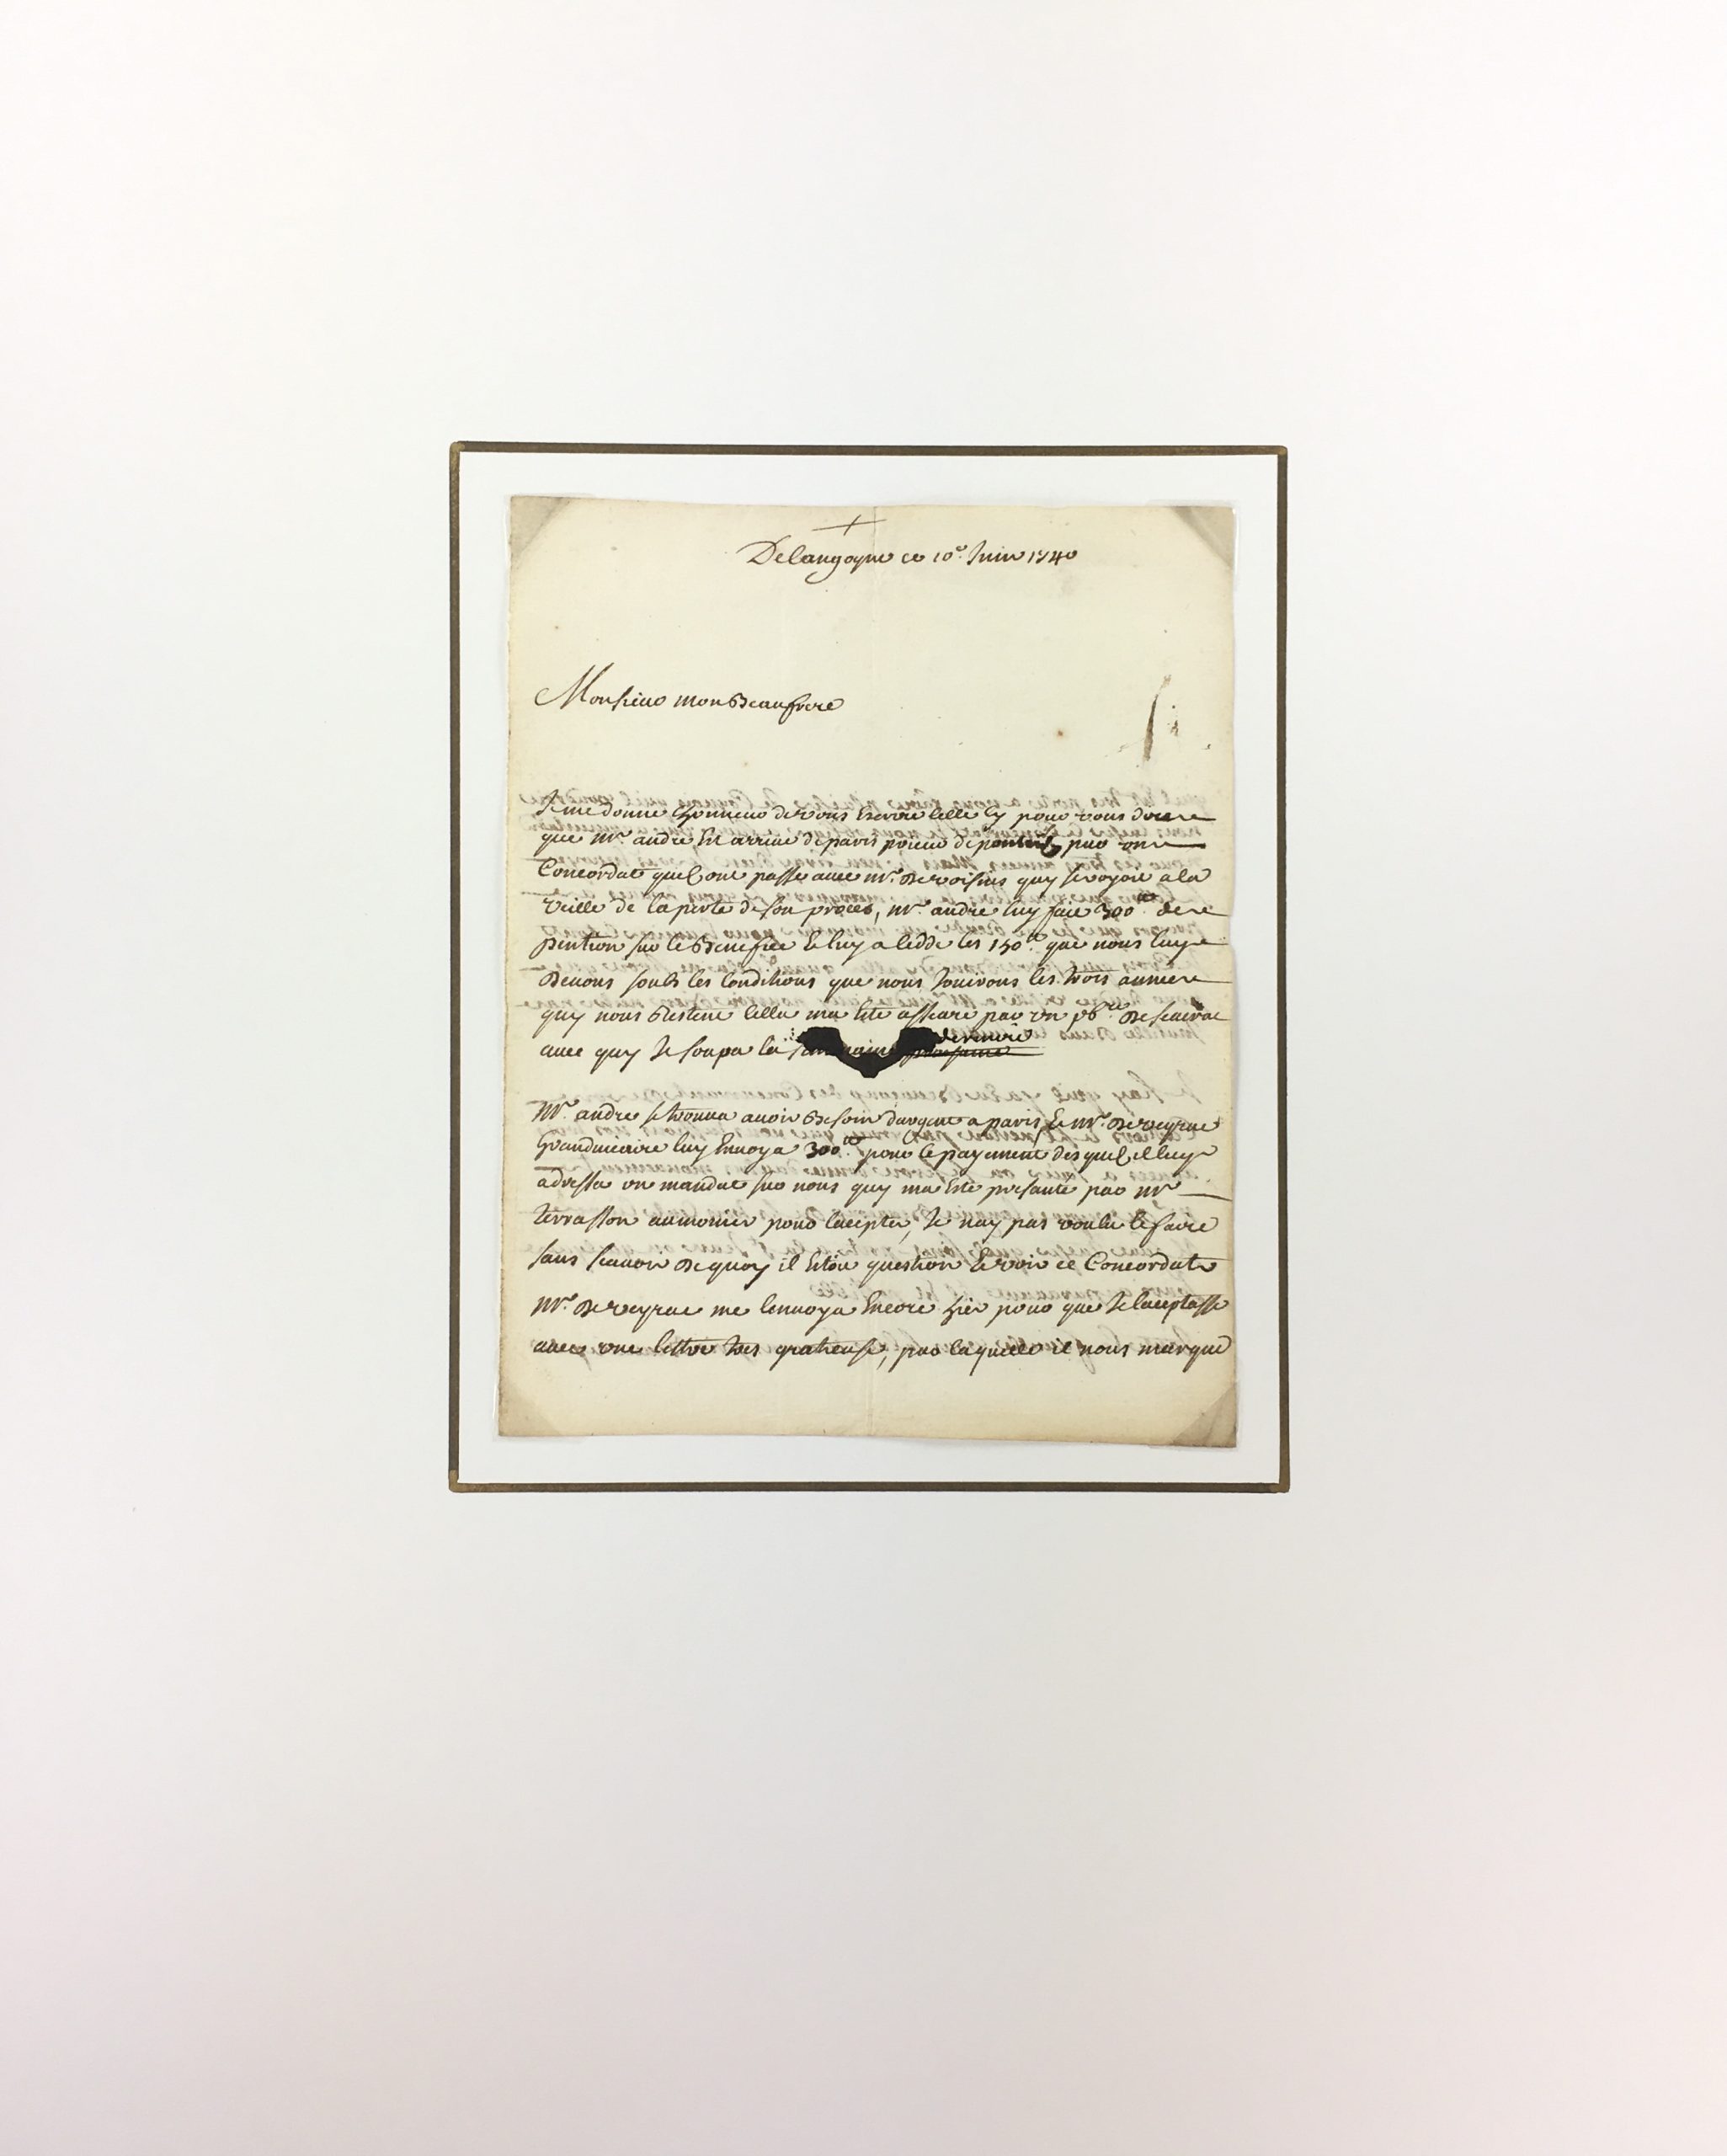 +
Delangogne ce 10e. Juin 1740
Monsieur mon Beaufrere
Je me donne lhonneur de vous Escrire celle Cy pour vous dire
que Mr. andré Est arrivé de paris pourvu de par une
Concordat quel ont passé avec Mr. De voisins quy se voyoit a la
veille de la perte de son procès, Mr. andré luy fait 300 tt. de
pention sur le Benefice Et luy a cedde les 150 tt. que nous luy
Devons soubs les Conditions que nous Jouirons les trois années
quy nous Restent Cella ma Eté asseuré par un pbre. De
avec quy Je soupa la semaine derniere
Mr. andré se trouva avoir Besoin dargent a paris, Et Mr. De veyrac
Grandvicaire luy Envoya 300 tt. pour le payement desquel il luy
adressa un mandat sur nous quy ma Eté presanté par Mr.
terrasson aumonier pour laccepter, Je nay pas voulu le faire
sans scavoir De quoy il Etoit question Et voir ce Concordat
Mr. De veyrac me lenvoya Encore hier pour que Je lacceptasse
avec une lettre tres gratieuse, par laquelle il nous marque